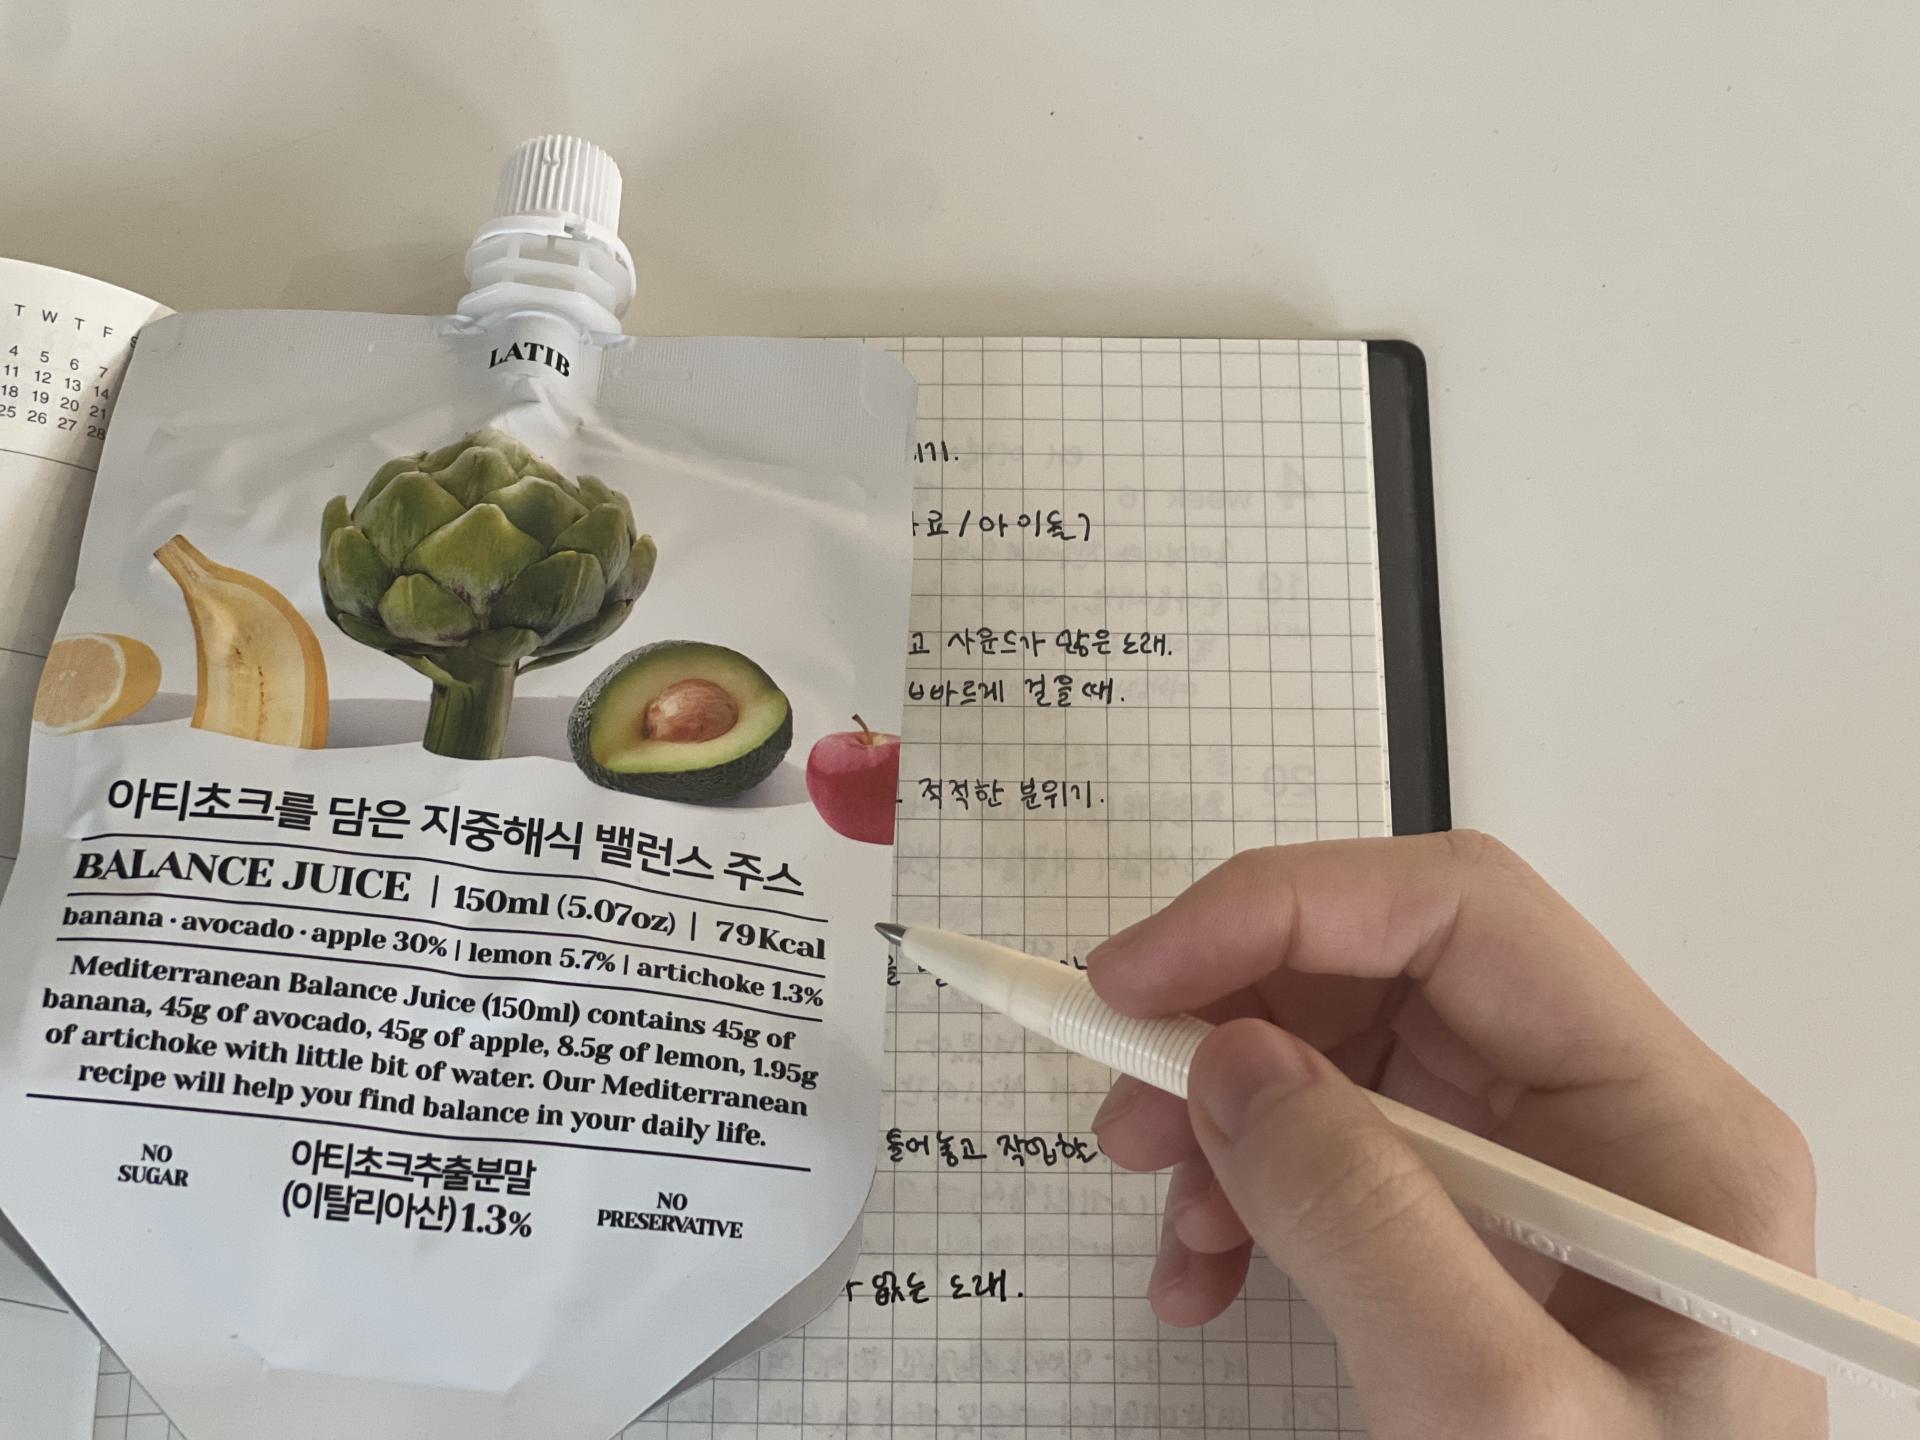 LATIB
아티초크를 담은 지중해식 밸런스 주스
BALANCE JUICE | 150ml (5.07oz) | 79Kcal
banana · avocado · apple 30% | lemon 5.7% | artichoke 1.3%
Mediterranean Balance Juice (150ml) contains 45g of
banana, 45g of avocado, 45g of apple, 8.5g of lemon, 1.95g
of artichoke with little bit of water. Our Mediterranean
recipe will help you find balance in your daily life.
NO
SUGAR
아티초크추출분말
(이탈리아산)1.3%
NO
PRESERVATIVE
T W T F
4 5 6 7
11 12 13 14
18 19 20 21
25 26 27 28
료 / 아이돌?
고 사운드가 많은 노래.
바르게 걸을 때.
적적한 분위기.
틀어놓고 작업할
없는 노래.
PILOT